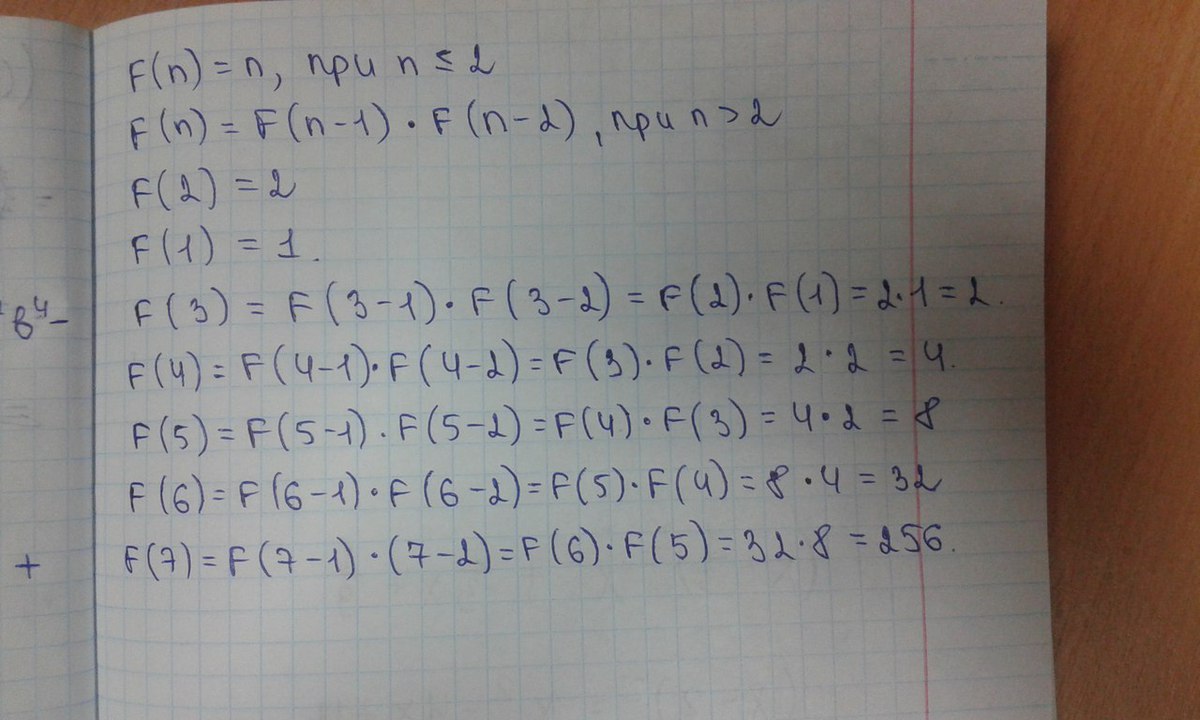 F(n) = n, при n ≤ 2
F(n) = F(n-1) · F(n-2), при n > 2
F(2) = 2
F(1) = 1.
F(3) = F(3-1) · F(3-2) = F(2) · F(1) = 2·1 = 2.
в⁴-
F(4) = F(4-1) · F(4-2) = F(3) · F(2) = 2 · 2 = 4.
F(5) = F(5-1) · F(5-2) = F(4) · F(3) = 4 · 2 = 8
F(6) = F(6-1) · F(6-2) = F(5) · F(4) = 8 · 4 = 32
+
F(7) = F(7-1) · (7-2) = F(6) · F(5) = 32 · 8 = 256.